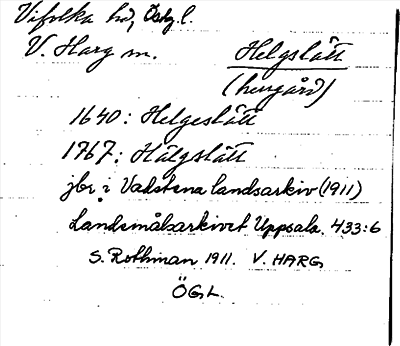 Vifolka hd, Östg. l.
V. Harg sn. Helgslätt
(herrgård)
1640: Helgeslätt
1767: Hälgslätt
jbr i Vadstena landsarkiv (1911)
Landsmålsarkivet Uppsala. 433:6
S. Rothman 1911. V. HARG
ÖGL.